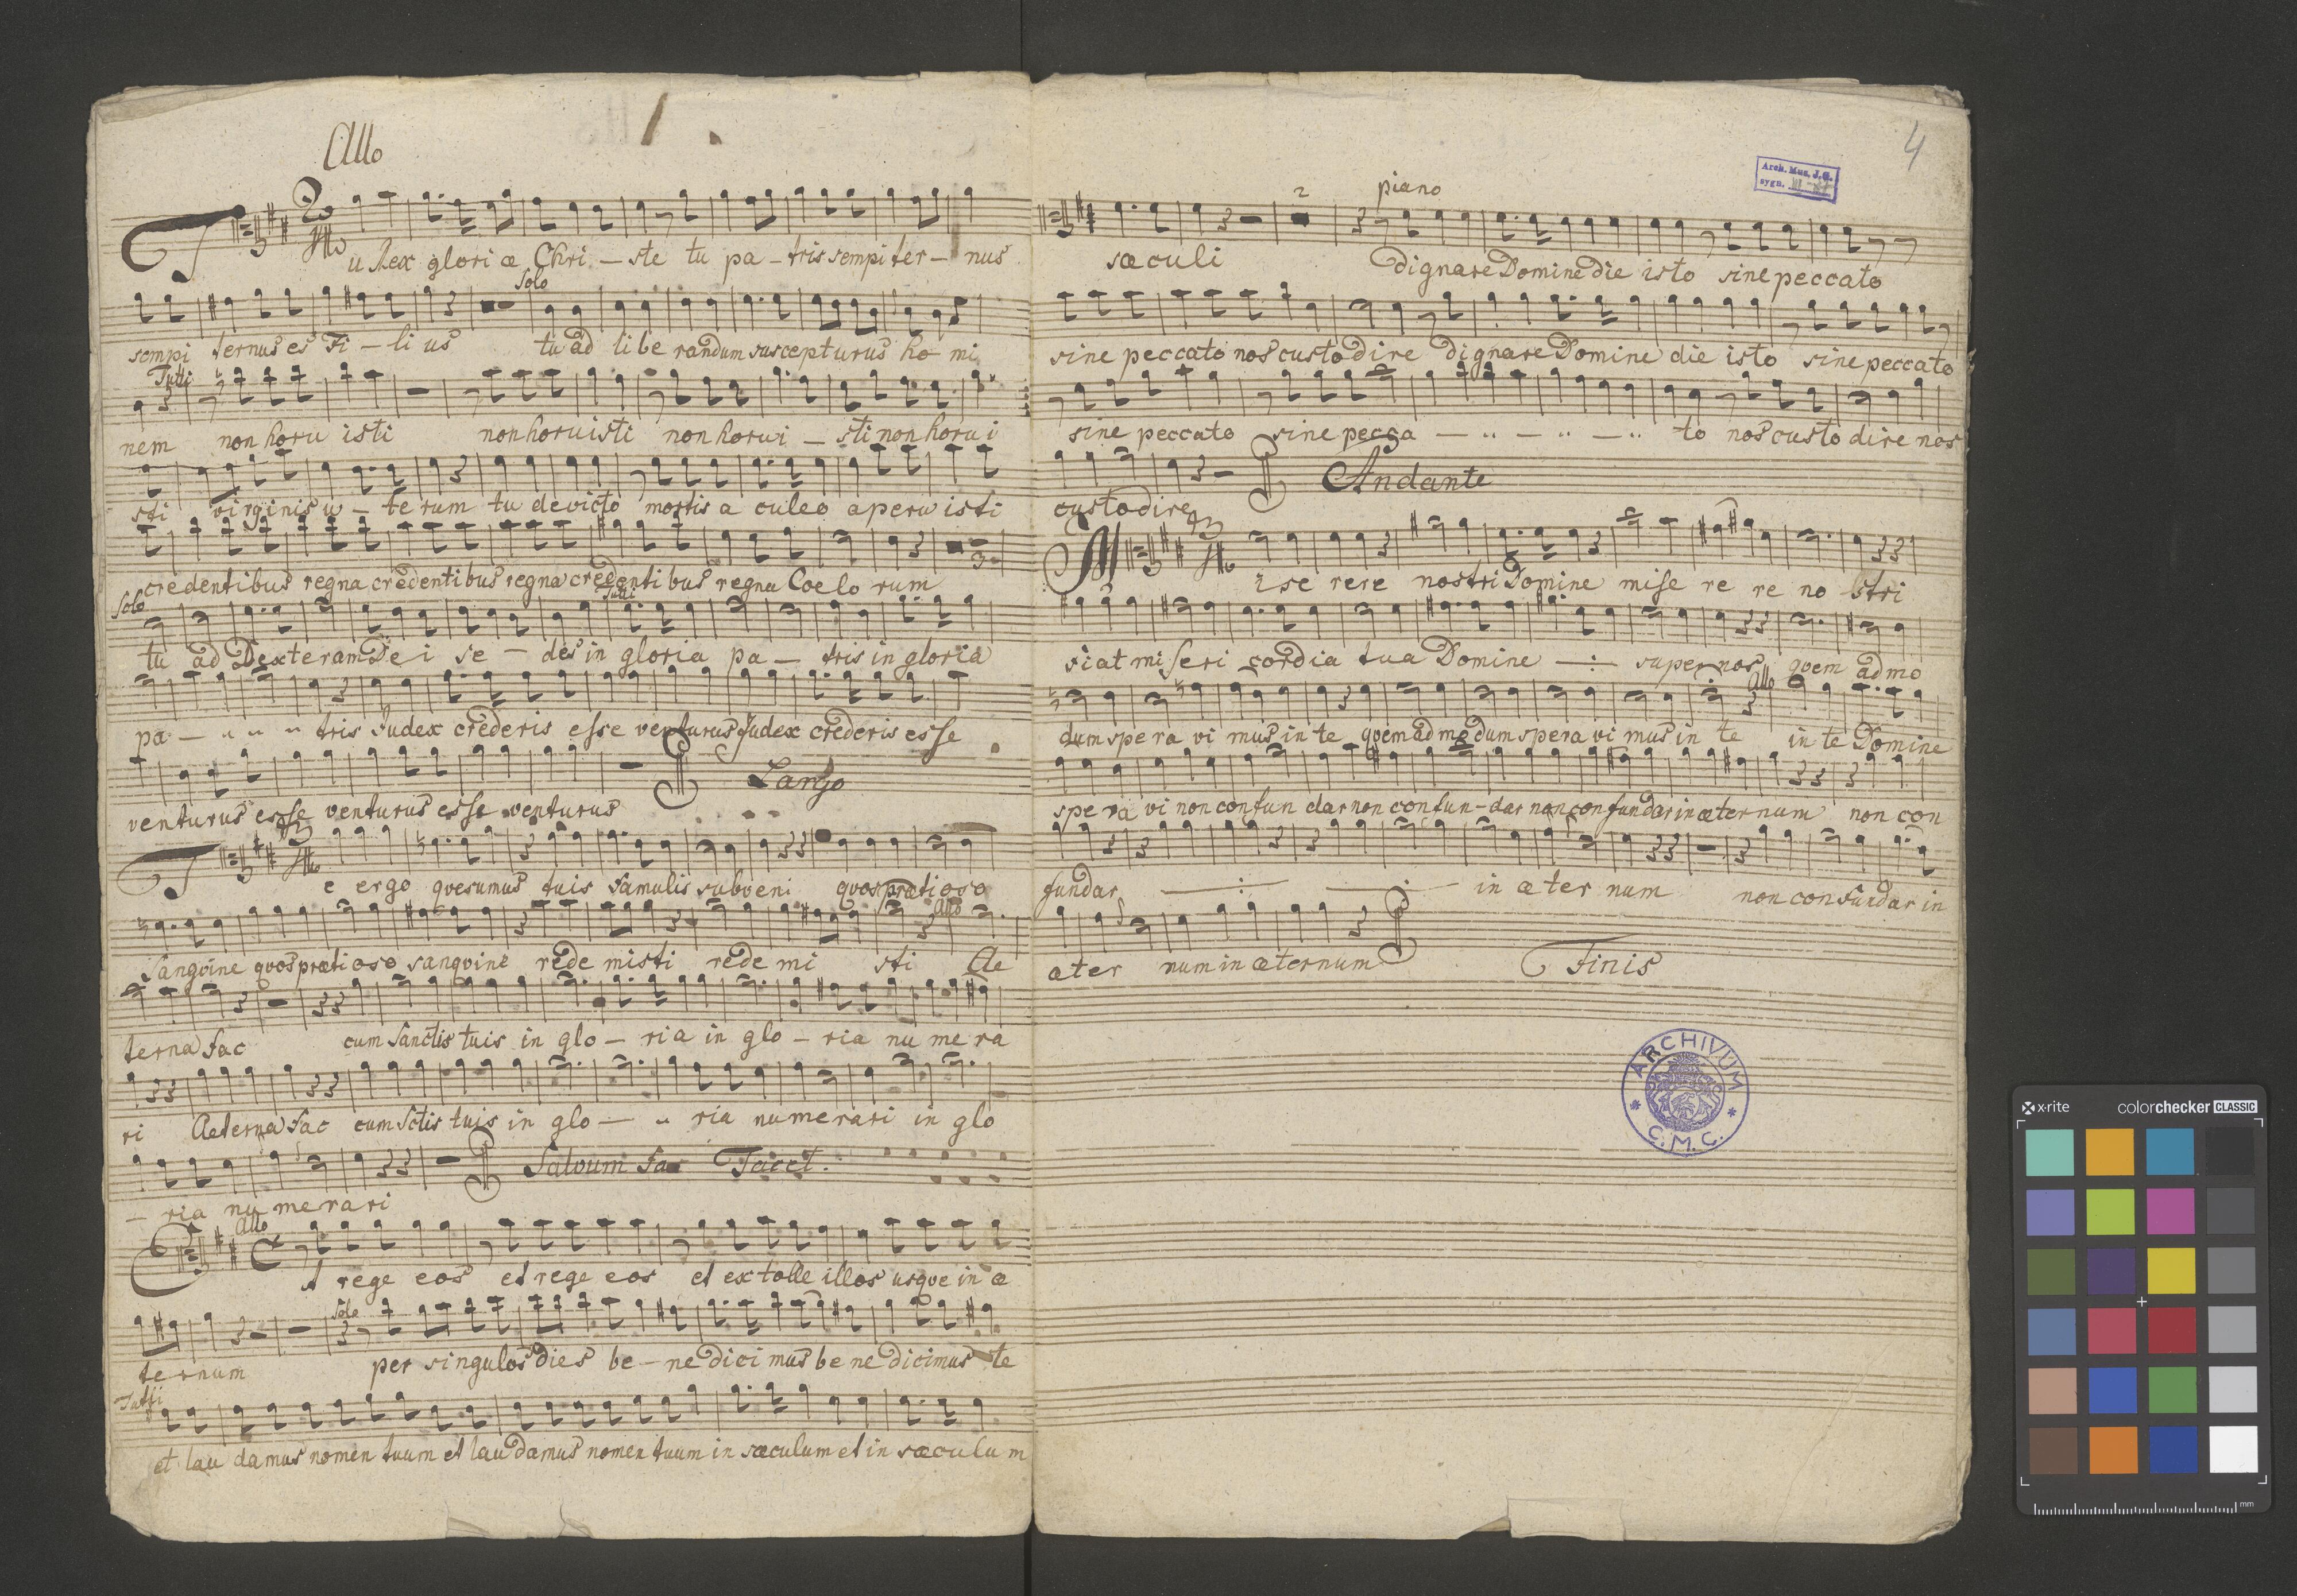 Allo
Tu Rex gloriæ Chri - ste tu pa - tris sempiter - nus
Solo
sempi ternus es Fi - li us tu ad li be randum suscepturus ho mi
Tutti
nem non horu isti non horuisti non horui - sti non horu i
sti virginis u - te rum tu devicto mortis a culeo aperu isti
credentibus regna credentibus regna credentibus regna Coelo rum
Solo
Tutti
tu ad Dexteram De i se - des in gloria pa - tris in gloria
pa - tris Judex crederis esse venturus Judex crederis esse
venturus esse venturus esse venturus
Largo
Te ergo qvesumus tuis famulis subveni qvos prætioso
Allo
Sangvine qvos prætioso sangvine rede misti rede mi sti Ae
terna fac cum Sanctis tuis in glo - ria in glo - ria nu me ra
ri Aeterna fac cum Sctis tuis in glo - ria numerari in glo
Salvum fac Tacet.
- ria nu merari
Allo
Et rege eos et rege eos et extolle illos usqve in æ
Solo
ternum per singulos dies be - ne dici mus be ne dicimus te
Tutti
et lau damus nomen tuum et laudamus nomen tuum in sæculum et in sæculum
4
Arch. Mus. J.G.
sygn.
2
piano
sæculi dignare Domine die isto sine peccato
sine peccato nos custodire dignare Domine die isto sine peccato
sine peccato sine pecca - to nos custo dire nos
Andante
custodire
Mise rere nostri Domine mise re re no stri
fiat miseri cordia tua Domine super nos qvem ad mo
Allo
dum spe ra vi mus in te qvem ad modum spera vi mus in te in te Domine
spe ra vi non confun dar non confun - dar non confundar in æternum non con
fundar in æ ter num non con fundar in
æter num in æternum
Finis
ARCHIVUM
C. M. C.
x-rite
colorchecker CLASSIC
mm